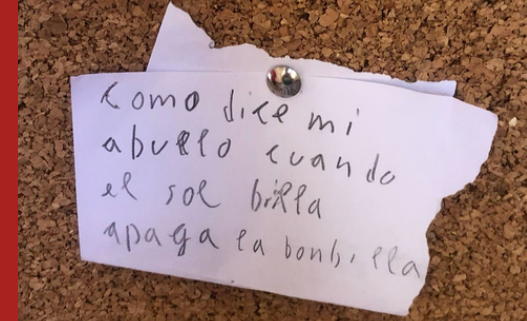 como dice mi
abuelo cuando
el sol brilla
apaga la bonbilla